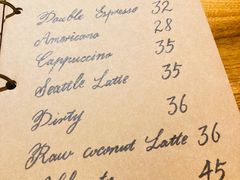 Double Espresso 32
Americano 28
Cappuccino 35
Seattle Latte 35
Dirty 36
Raw coconut Latte 36
45